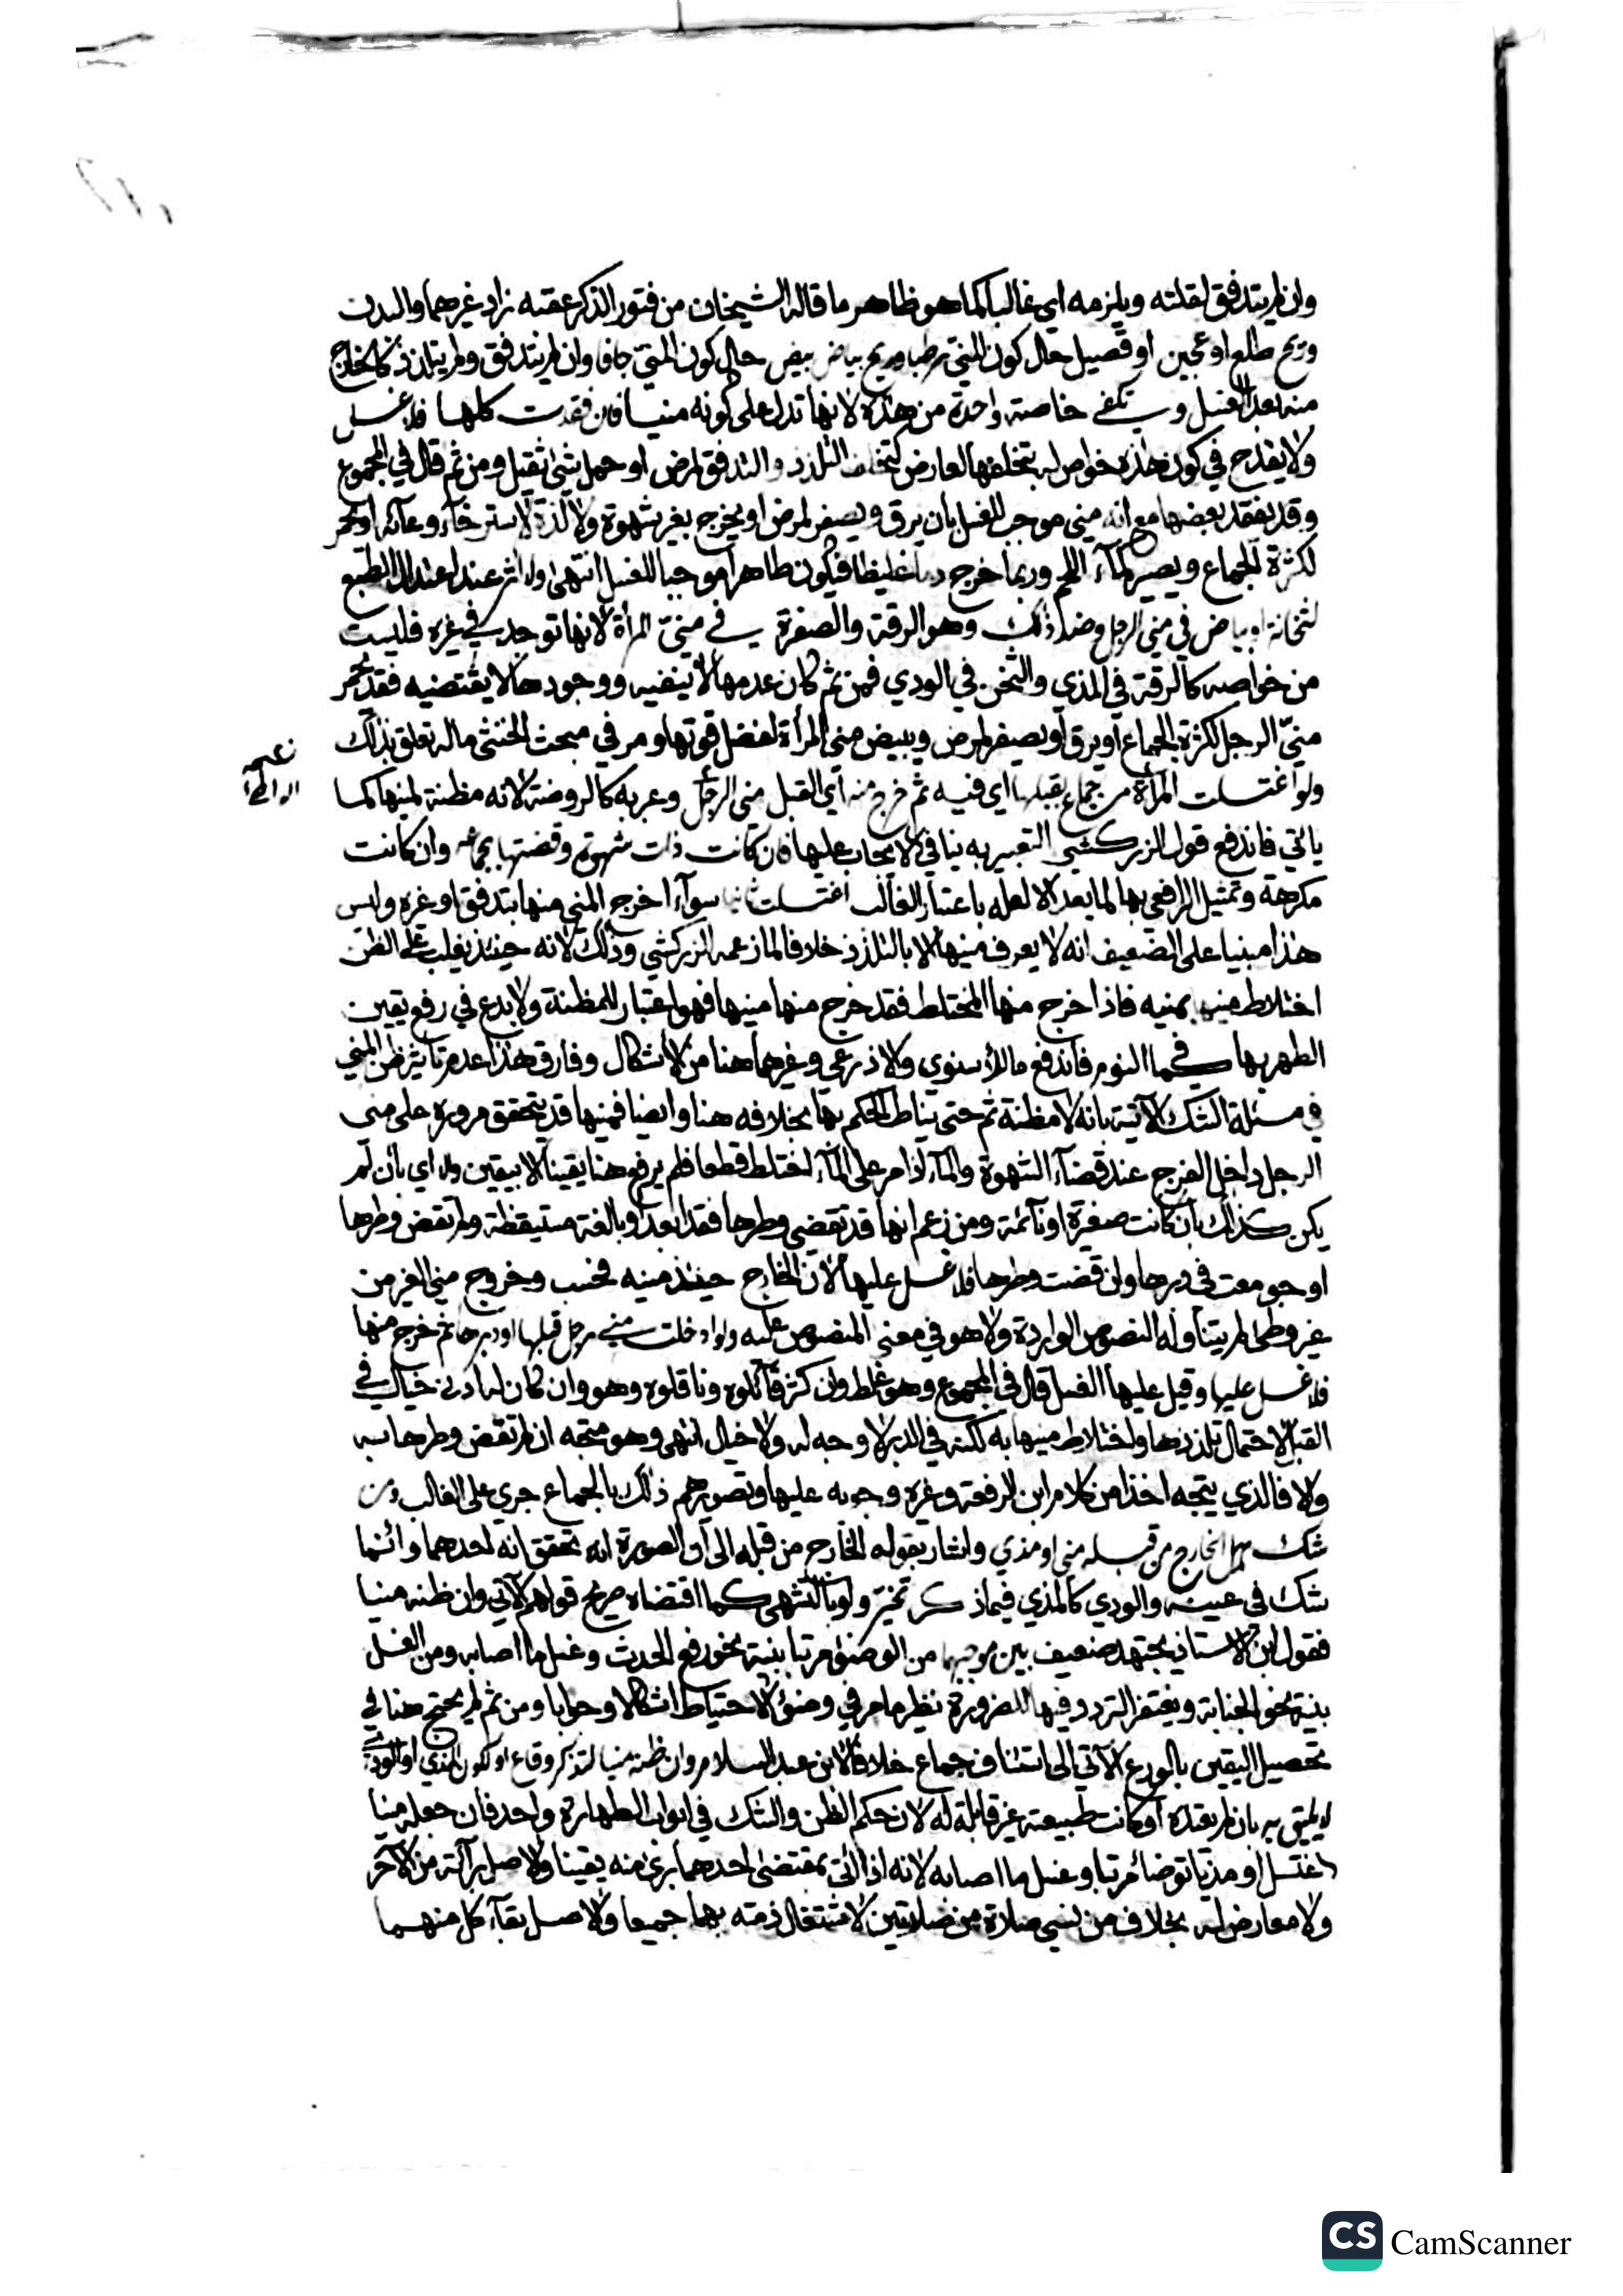 وان لم يتدفق لقلته ويلزمه اي غالبا كما هو ظاهر ما قاله الشيخان من فتور الذكر عقبه زاد غيرهما والبدن
وريح طلع او عجين او فصيل حال كون المني رطبا وريح بياض بيض حال كون المني جافا وان لم يتدفق ولم يتلذذ كالخارج
منه بعد الغسل ويكفي خاصة واحدة من هذه لانها تدل على كونه منيا فان فقدت كلها فلا غسل
ولا يقدح في كون هذه خواص له تخلفها لعارض كتخلف التلذذ والتدفق لمرض او حمل شئ ثقيل ومن ثم قال في المجموع
وقد يفقد بعضها مع انه مني موجب للغسل بان يرق ويصفر لمرض او يخرج بغير شهوة ولا لذة لاسترخاء وعائه او يحمر
لكثرة الجماع ويصير كماء اللحم وربما خرج دما غليظا فيكون طاهرا موجبا للغسل انتهى ولا اثر عند اعتدال الطبع
لثخانة او بياض في مني الرجل وضد ذلك وهو الرقة والصفرة في مني المرأة لانها توجد في غيره فليست
من خواصه كالرقة في المذي والثخن في الودي فمن ثم كان عدمها لا ينفيه ووجودها لا يقتضيه فقد يحمر
مني الرجل لكثرة الجماع او يرق او يصفر لمرض ويبيض مني المرأة لفضل قوتها ومر في مبحث الخنثى ماله تعلق بذلك
ولو اغتسلت المرأة من جماع بقبلها اي فيه ثم خرج منه اي القبل مني الرجل وعبر به كالروضة لانه مظنة لمنيها كما
ياتي فاندفع قول الزركشي التعبير به ينافي الايجاب عليها فان كانت ذات شهوة وقضتها بجماعه وان كانت
مكرهة وتمثيل الرافعي بها لما بعد الا لعله باعتبار الغالب اغتسلت ثانيا سواء اخرج المني منها بتدفق او غيره وليس
هذا مبنيا على الضعيف انه لا يعرف منيها الا بالتلذذ خلافا لما زعمه الزركشي وذلك لانه حينئذ يغلب على الظن
اختلاط منيها بمنيه فاذا خرج منها المختلط فقد خرج منها منيها فهو اعتبار للمظنة ولا بدع في رفع يقين
الطهر بها كما في النوم فاندفع ما للاسنوي والاذرعي وغيرهما هنا من الاشكال وفارق هذا عدم تاثير ظن المني
في مسئلة الشك الاتية بانه لا مظنة ثم حتى يناط الحكم بها بخلافه هنا وايضا فمنيها قد يتحقق مروره على مني
الرجل داخل الفرج عند قضاء الشهوة والماء اذا مر على الماء اختلط قطعا فلم يرفع هنا يقينا الا بيقين والا اي بان لم
يكن كذلك بان كانت صغيرة او نائمة ومن زعم انها قد تقضي وطرها فقد ابعد او بالغة مستيقظة ولم تقض وطرها
او جومعت في دبرها وان قضت وطرها فلا غسل عليها لان الخارج حينئذ منيه فحسب وخروج مني الغير من
غير وطئ لم يتناوله النصوص الواردة ولا هو في معنى المنصوص عليه ولو ادخلت مني رجل قبلها او دبرها ثم خرج منها
فلا غسل عليها وقيل عليها الغسل قال في المجموع وهو غلط وان كثر قائلوه وناقلوه وهو وان كان له ادنى خيال في
القبل لاحتمال تلذذها واختلاط منيها به لكنه في الدبر لا وجه له ولا خيال انتهى وهو متجه ان لم تقض وطرها به
والا فالذي يتجه اخذا من كلام ابن الرفعة وغيره وجوبه عليها وتصويرهم ذلك بالجماع جري على الغالب ومن
شك هل الخارج من قبله مني او مذي واشار بقوله الخارج من قبله الى ان الصورة انه تحقق انه احدهما وانما
شك في عينه والودي كالمذي فيما ذكر تخير ولو بالتشهي كما اقتضاه صريح قولهم الآتي وان ظنه منيا
فقول ابن الاستاذ يجتهد ضعيف بين موجبهما من الوضوء مرتبا بنية نحو رفع الحدث وغسل ما اصابه ومن الغسل
بنية نحو الجنابة ويغتفر التردد فيها للضرورة نظير ما مر في وضوء الاحتياط اشكالا وجوابا ومن ثم لم يحتج هنا في
تحصيل اليقين بالورع الآتي الى استئناف جماع خلافا لابن عبد السلام وان ظنه منيا لتذكر وقاع او لكون المذي او الودي
لا يليق به بان لم يعتده او كانت طبيعته غير قابلة له لان حكم الظن والشك في ابواب الطهارة واحد فان جعله منيا
اغتسل او مذيا توضأ مرتبا وغسل ما اصابه لانه اذا اتى بمقتضى احدهما برئ منه يقينا والاصل براءته من الآخر
ولا معارض له بخلاف من نسي صلاة من صلاتين لاشتغال ذمته بهما جميعا والاصل بقاء كل منهما
CS CamScanner